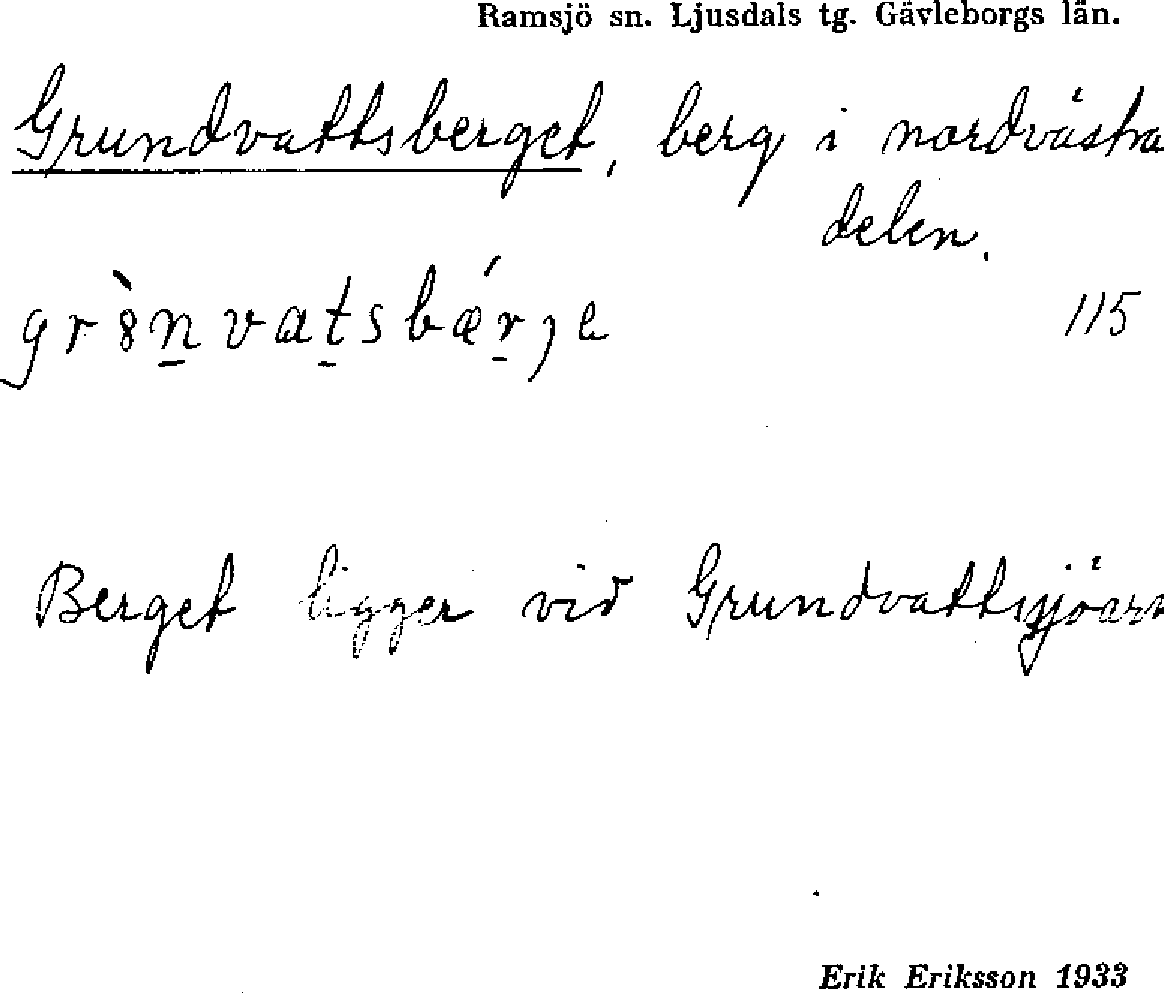 Ramsjö sn. Ljusdals tg. Gävleborgs län.
Grundvattsberget, berg i nordvästra
delen.
gr8̀n̲vat̲sbǽr̲je 115
Berget ligger vid Grundvattssjöarn
Erik Eriksson 1933